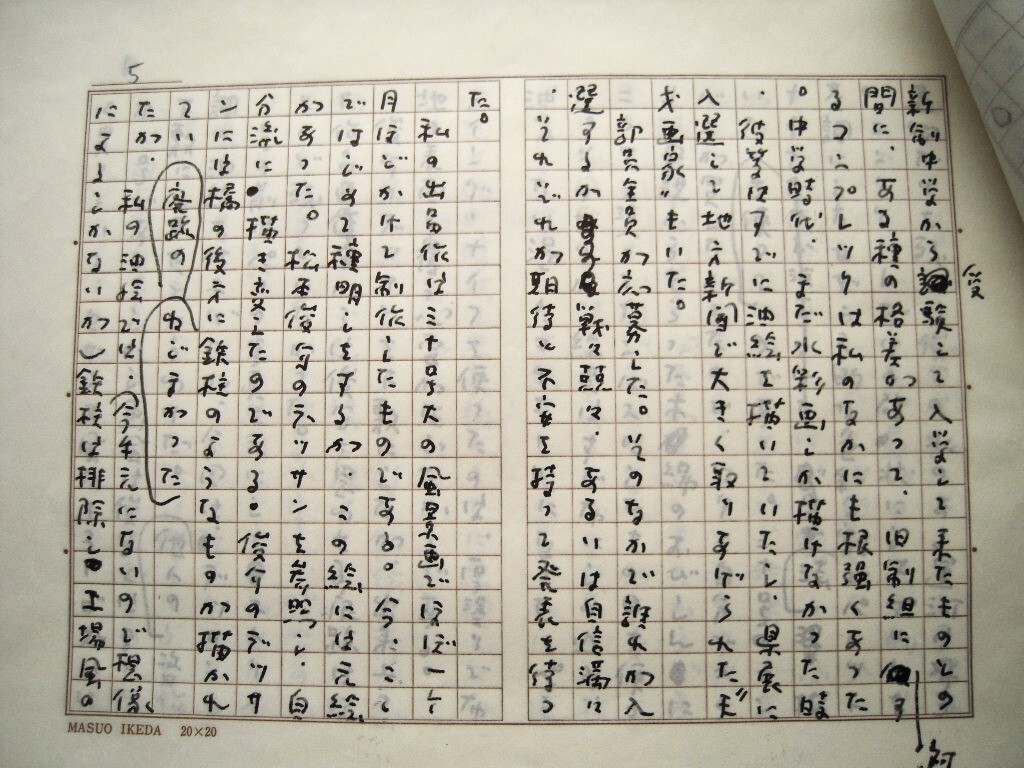 新制中学から受験して入学して来たものとの
間に、ある種の格差があって、旧制組にす
るコンプレックは私のなかにも根強くあった
。中学時代、まだ水彩画しか描けなかった時
、彼等はすでに油絵を描いていた。県展に
入選して地方新聞で大きく取りあげられた〝天
才画家〟もいた。
部員全員が応募した。そのなかで誰れが入
選するか、戦々競々、あるいは自信満々に
、それぞれが期待と不安を持って発表を待っ
た。
私の出品作は三十号大の風景画でほぼ一ヶ
月ほどかけて制作したものである。今、ここ
ではじめて種明しをするが、この絵には元絵
があった。松本俊介のデッサンを参照し、自
分流に描き変えたのである。俊介のデッサ
ンには橋の後方に鉄柱のようなものが描かれ
ていて廃墟のねじまがった
たが、私の油絵では、(今手元にないので想像
によるしかないが)鉄柱は排除し工場風の
5
MASUO IKEDA 20×20